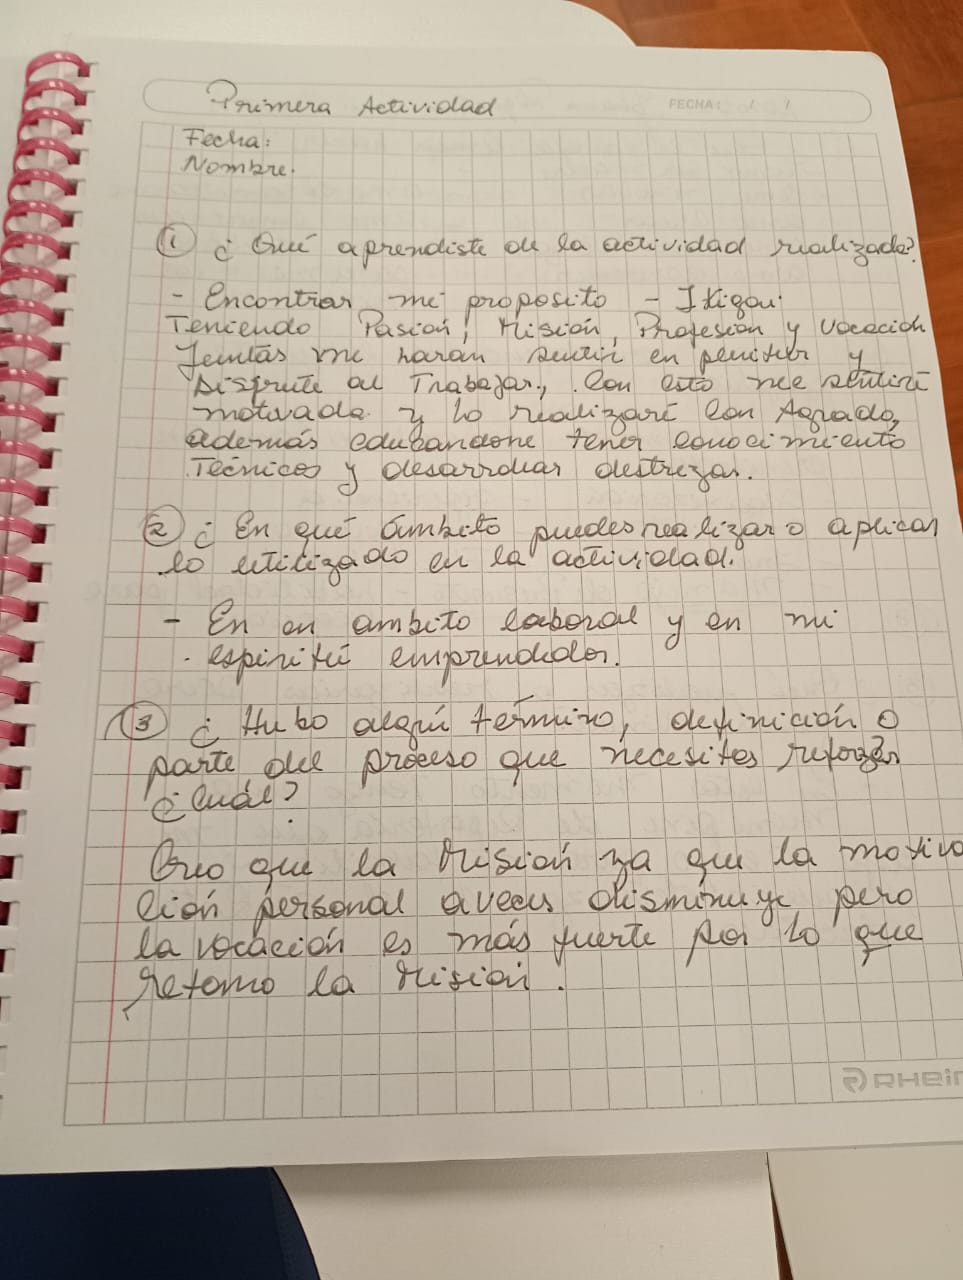 Primera Actividad
FECHA: / /
Fecha:
Nombre.
① ¿ Qué aprendiste de la actividad realizada?
- Encontrar mi proposito - Ikigai.
Teniendo Pasión, Misión, Profesión y vocación
Juntas me haran sentir en plenitud y
Disfruté al Trabajar, Con esto me sentiré
motivada y lo realizaré con Agrado,
además educandome tener conocimiento
Técnicos y desarrollar destrezas.
② ¿ En qué ámbito puedes realizar o aplicar
lo utilizado en la actividad.
- En en ambito laboral y en mi
espiritú emprendedor.
③ ¿ Hubo algún término, definición o
parte del proceso que necesites reforzar
¿ Cuál?
Creo que la Misión ya que la motiva
ción personal aveces disminuye pero
la vocación es más fuerte por lo que
retomo la Misión.
RHein